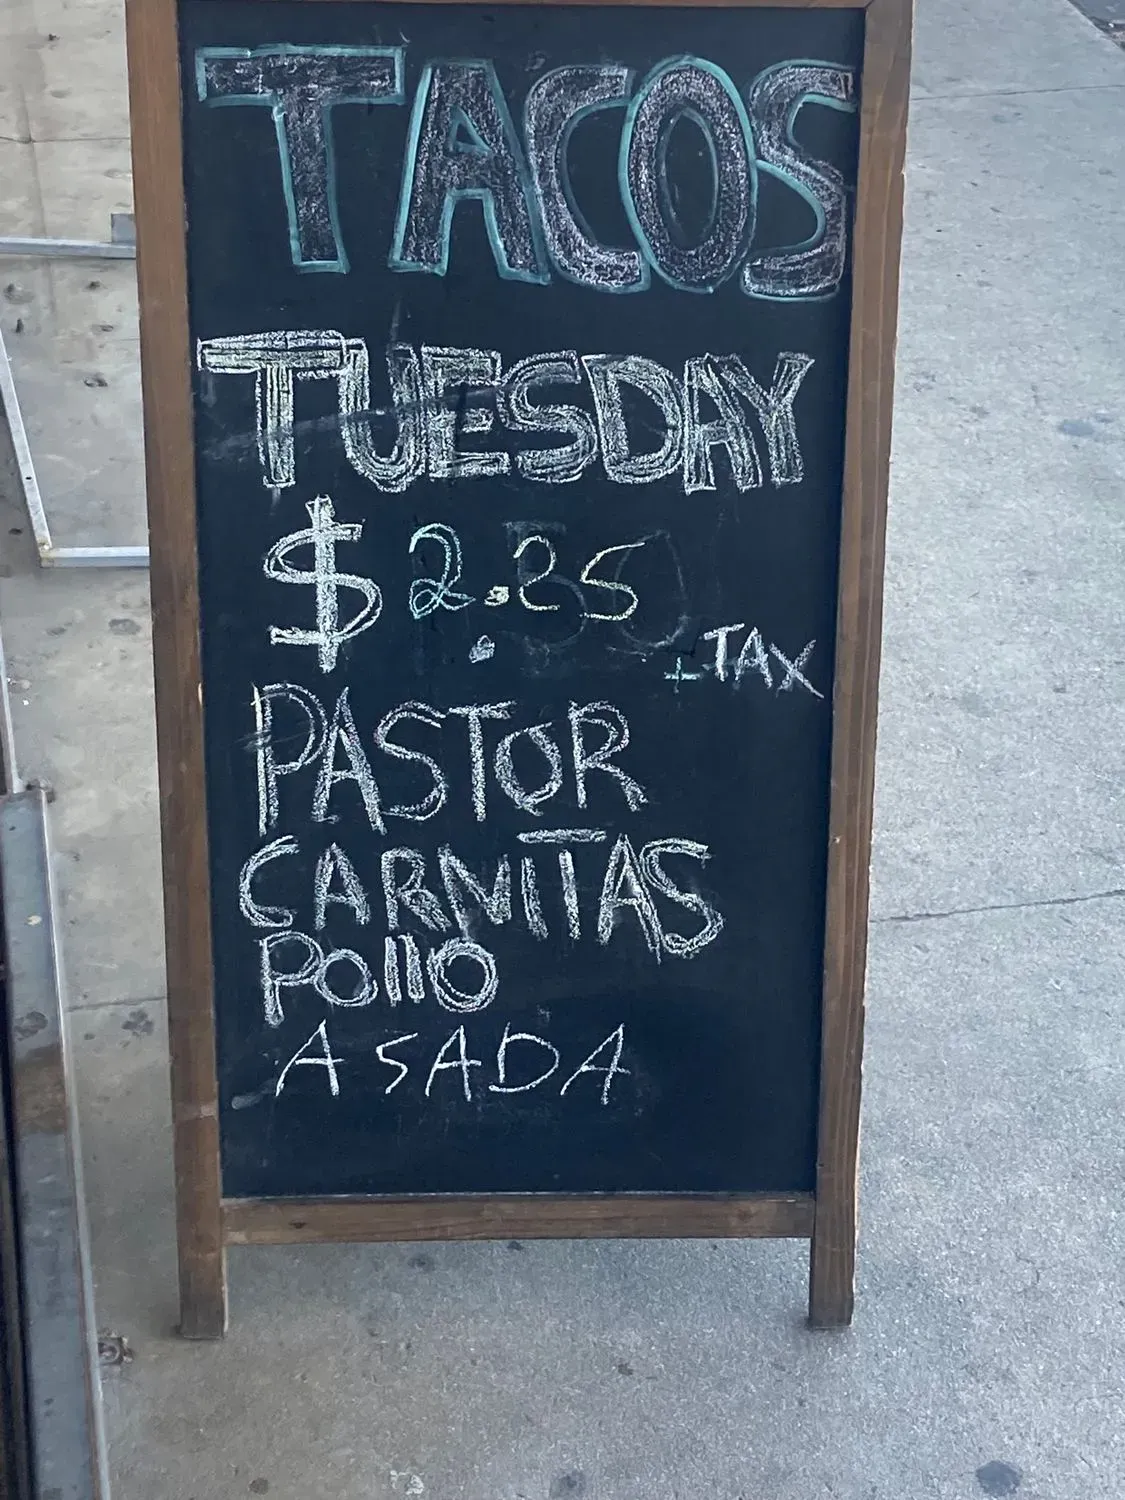 TACOS
TUESDAY
$ 2.25
+TAX
PASTOR
CARNITAS
Pollo
ASADA